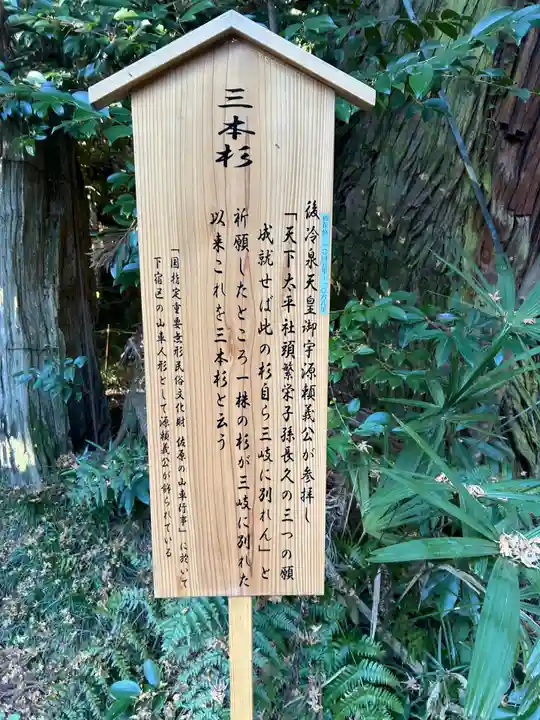 三本杉
後冷泉天皇御宇源頼義公が参拝し
「天下太平社頭繁栄子孫長久の三つの願
成就せば此の杉自ら三岐に別れん」と
祈願したところ一株の杉が三岐に別れた
以来これを三本杉と云う
「国指定重要無形民俗文化財 佐原の山車行事」に於いて
下宿区の山車人形として源頼義公が飾られている